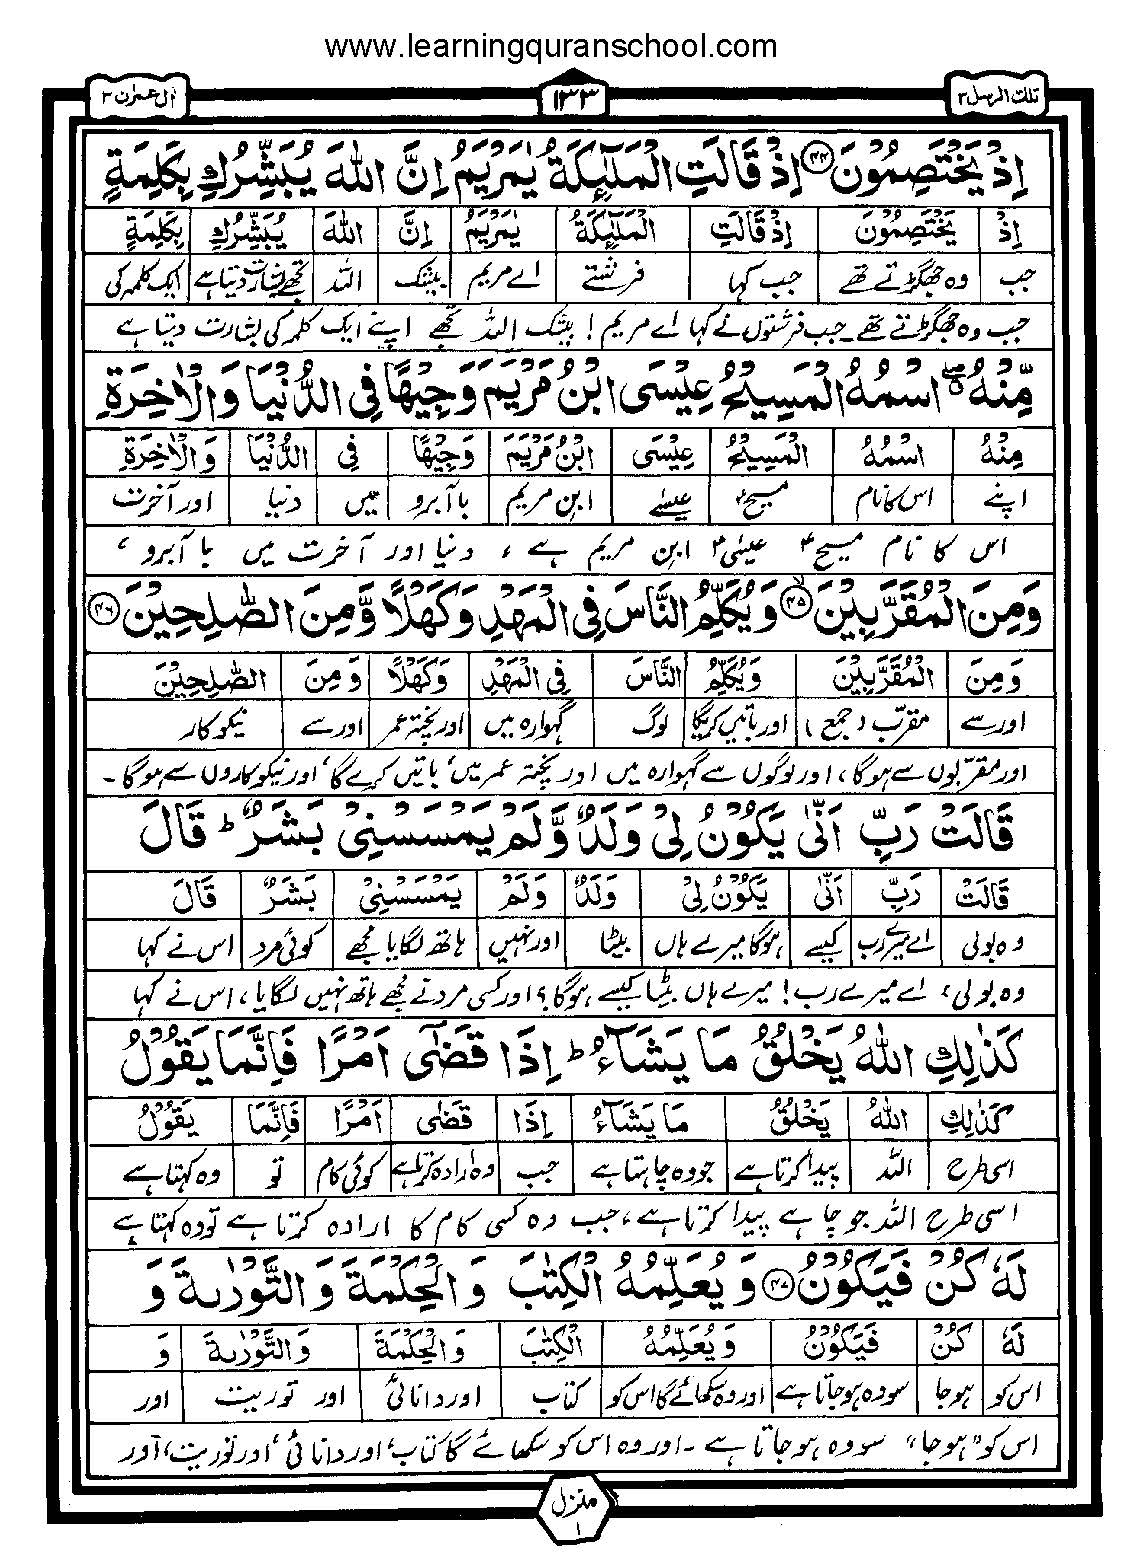 www.learningquranschool.com
تلك الرسل ٣
١٣٣
اٰل عمرٰن ٣
اِذْ يَخْتَصِمُوْنَ ﴿٤٤﴾ اِذْ قَالَتِ الْمَلٰٓئِكَةُ يٰمَرْيَمُ اِنَّ اللّٰهَ يُبَشِّرُكِ بِكَلِمَةٍ
اِذْ يَخْتَصِمُوْنَ اِذْ قَالَتِ الْمَلٰٓئِكَةُ يٰمَرْيَمُ اِنَّ اللّٰهَ يُبَشِّرُكِ بِكَلِمَةٍ
جب وہ جھگڑتے تھے جب کہا فرشتے اے مریم بیشک اللہ تجھے بشارت دیتا ہے ایک کلمہ کی
جب وہ جھگڑتے تھے۔ جب فرشتوں نے کہا اے مریم! بیشک اللہ تجھے اپنے ایک کلمہ کی بشارت دیتا ہے
مِّنْهُ ۖ اسْمُهُ الْمَسِيْحُ عِيْسَى ابْنُ مَرْيَمَ وَجِيْهًا فِى الدُّنْيَا وَالْاٰخِرَةِ
مِنْهُ اسْمُهُ الْمَسِيْحُ عِيْسَى ابْنُ مَرْيَمَ وَجِيْهًا فِى الدُّنْيَا وَالْاٰخِرَةِ
اپنے اس کا نام مسیحؑ عیسٰے ابن مریم با آبرو میں دنیا اور آخرت
اس کا نام مسیحؑ عیسٰیؑ ابن مریم ہے، دنیا اور آخرت میں با آبرو،
وَمِنَ الْمُقَرَّبِيْنَ ﴿٤٥﴾ وَيُكَلِّمُ النَّاسَ فِى الْمَهْدِ وَكَهْلًا وَّمِنَ الصّٰلِحِيْنَ ﴿٤٦﴾
وَمِنَ الْمُقَرَّبِيْنَ وَيُكَلِّمُ النَّاسَ فِى الْمَهْدِ وَكَهْلًا وَمِنَ الصّٰلِحِيْنَ
اور سے مقرب (جمع) اور باتیں کریگا لوگ گہوارہ میں اور پختہ عمر اور سے نیکو کار
اور مقربوں سے ہوگا، اور لوگوں سے گہوارہ میں اور پختہ عمر میں باتیں کرے گا، اور نیکو کاروں سے ہوگا۔
قَالَتْ رَبِّ اَنّٰى يَكُوْنُ لِىْ وَلَدٌ وَّلَمْ يَمْسَسْنِىْ بَشَرٌ ؕ قَالَ
قَالَتْ رَبِّ اَنّٰى يَكُوْنُ لِىْ وَلَدٌ وَلَمْ يَمْسَسْنِىْ بَشَرٌ قَالَ
وہ بولی اے میرے رب کیسے ہوگا میرے ہاں بیٹا اور نہیں ہاتھ لگایا مجھے کوئی مرد اس نے کہا
وہ بولی، اے میرے رب! میرے ہاں بیٹا کیسے ہوگا؟ اور کسی مرد نے مجھے ہاتھ نہیں لگایا، اس نے کہا
كَذٰلِكِ اللّٰهُ يَخْلُقُ مَا يَشَآءُ ؕ اِذَا قَضٰٓى اَمْرًا فَاِنَّمَا يَقُوْلُ
كَذٰلِكِ اللّٰهُ يَخْلُقُ مَا يَشَآءُ اِذَا قَضٰٓى اَمْرًا فَاِنَّمَا يَقُوْلُ
اسی طرح اللہ پیدا کرتا ہے جو وہ چاہتا ہے جب وہ ارادہ کرتا ہے کوئی کام تو وہ کہتا ہے
اسی طرح اللہ جو چاہے پیدا کرتا ہے، جب وہ کسی کام کا ارادہ کرتا ہے تو وہ کہتا ہے
لَهٗ كُنْ فَيَكُوْنُ ﴿٤٧﴾ وَيُعَلِّمُهُ الْكِتٰبَ وَالْحِكْمَةَ وَالتَّوْرٰىةَ وَ
لَهٗ كُنْ فَيَكُوْنُ وَيُعَلِّمُهُ الْكِتٰبَ وَالْحِكْمَةَ وَالتَّوْرٰىةَ وَ
اس کو ہوجا سو وہ ہو جاتا ہے اور وہ سکھائے گا اس کو کتاب اور دانائی اور توریت اور
اس کو ”ہوجا“ سو وہ ہو جاتا ہے۔ اور وہ اس کو سکھائے گا کتاب، اور دانائی، اور توریت، اور
منزل ١